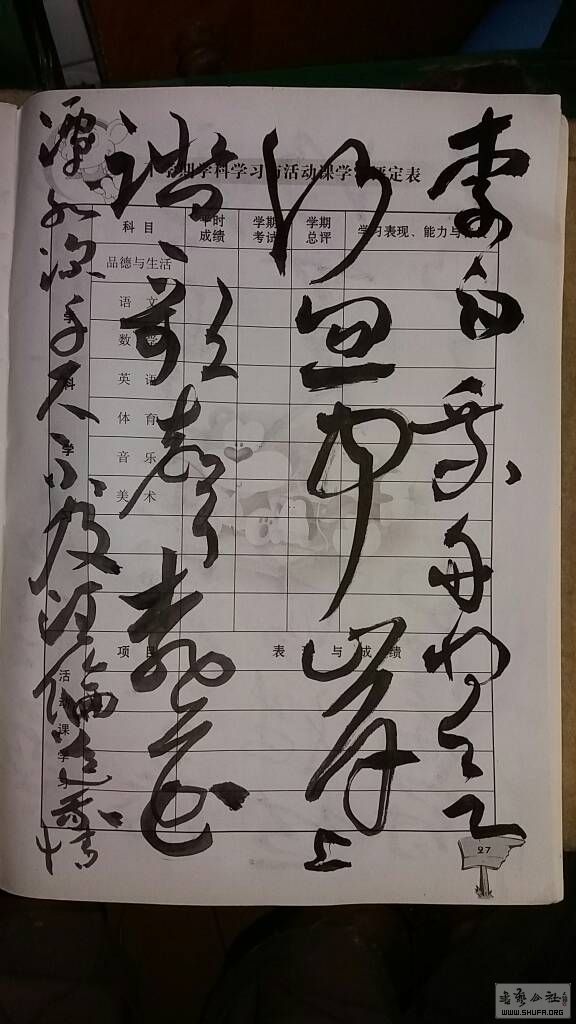 李白乘舟将欲
行忽闻岸上
踏歌声桃花
潭水深千尺不及汪伦送我情
学科学习与活动课学 评定表
科 目 平时成绩 学期考试 学期总评 学习表现、能力与
品德与生活
语 文
数 学
英 语
体 育
音 乐
美 术
学科学
项 目 表 现 与 成 绩
活动课学习
27
WWW.SHUFA.ORG